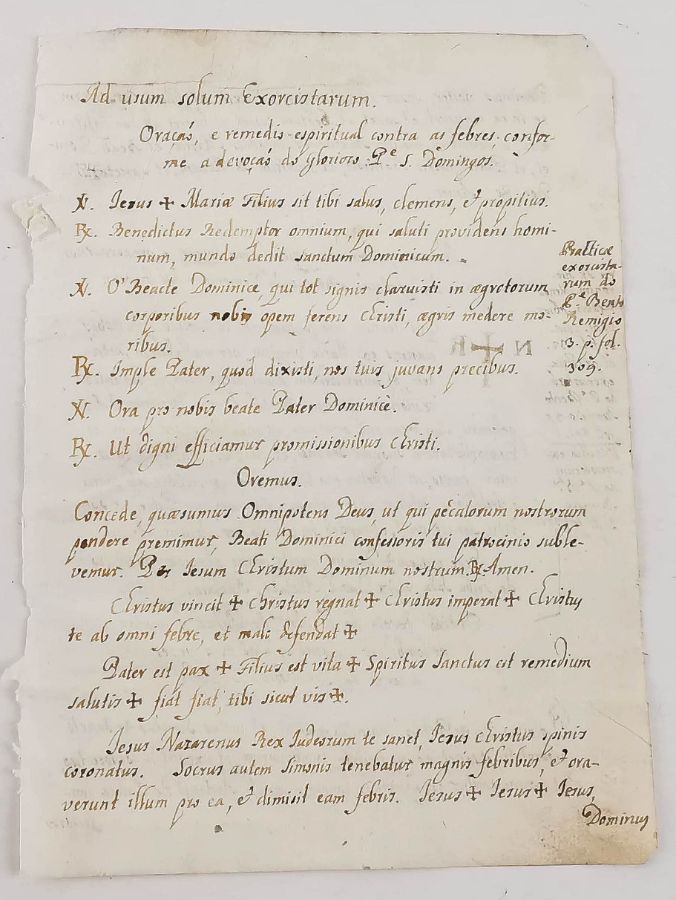 Ad usum solum Exorcistarum.
Oraçaó, e remedio espiritual contra as febres, confor-
me a devoçaó do Glorioso Pe. S. Domingos.
V. Jesus ✠ Mariæ Filius sit tibi salus, clemens, et propitius.
R. Benedictus Redemptor omnium, qui saluti providens homi-
num, mundo dedit sanctum Dominicum.
V. O' Beate Dominice, qui tot signis claruisti in ægrotorum
corporibus nobis opem ferens Christi, ægris medere mo-
ribus.
R. Imple Pater, quod dixisti, nos tuis juvans precibus.
V. Ora pro nobis beate Pater Dominice.
R. Ut digni efficiamur promissionibus Christi.
Oremus.
Concede, quæsumus Omnipotens Deus, ut qui pecatorum nostrorum
pondere premimur, Beati Dominici confessoris tui patrocinio suble-
vemur. Per Jesum Christum Dominum nostrum. R. Amen.
Christus vincit ✠ Christus regnat ✠ Christus imperat ✠ Christus
te ab omni febre, et malo defendat ✠
Pater est pax ✠ Filius est vita ✠ Spiritus Sanctus est remedium
salutis ✠ fiat fiat, tibi sicut vis ✠.
Jesus Nazarenus Rex Judeorum te sanet, Jesus Christus spinis
coronatus. Socrus autem Simonis tenebatur magnis febribus, et ora-
verunt illum pro ea, et dimisit eam febris. Jesus ✠ Jesus ✠ Jesus,
Dominus
Praticæ
exorcista-
rum do
Pe. Bento
Remigio
3. p. fol.
309.